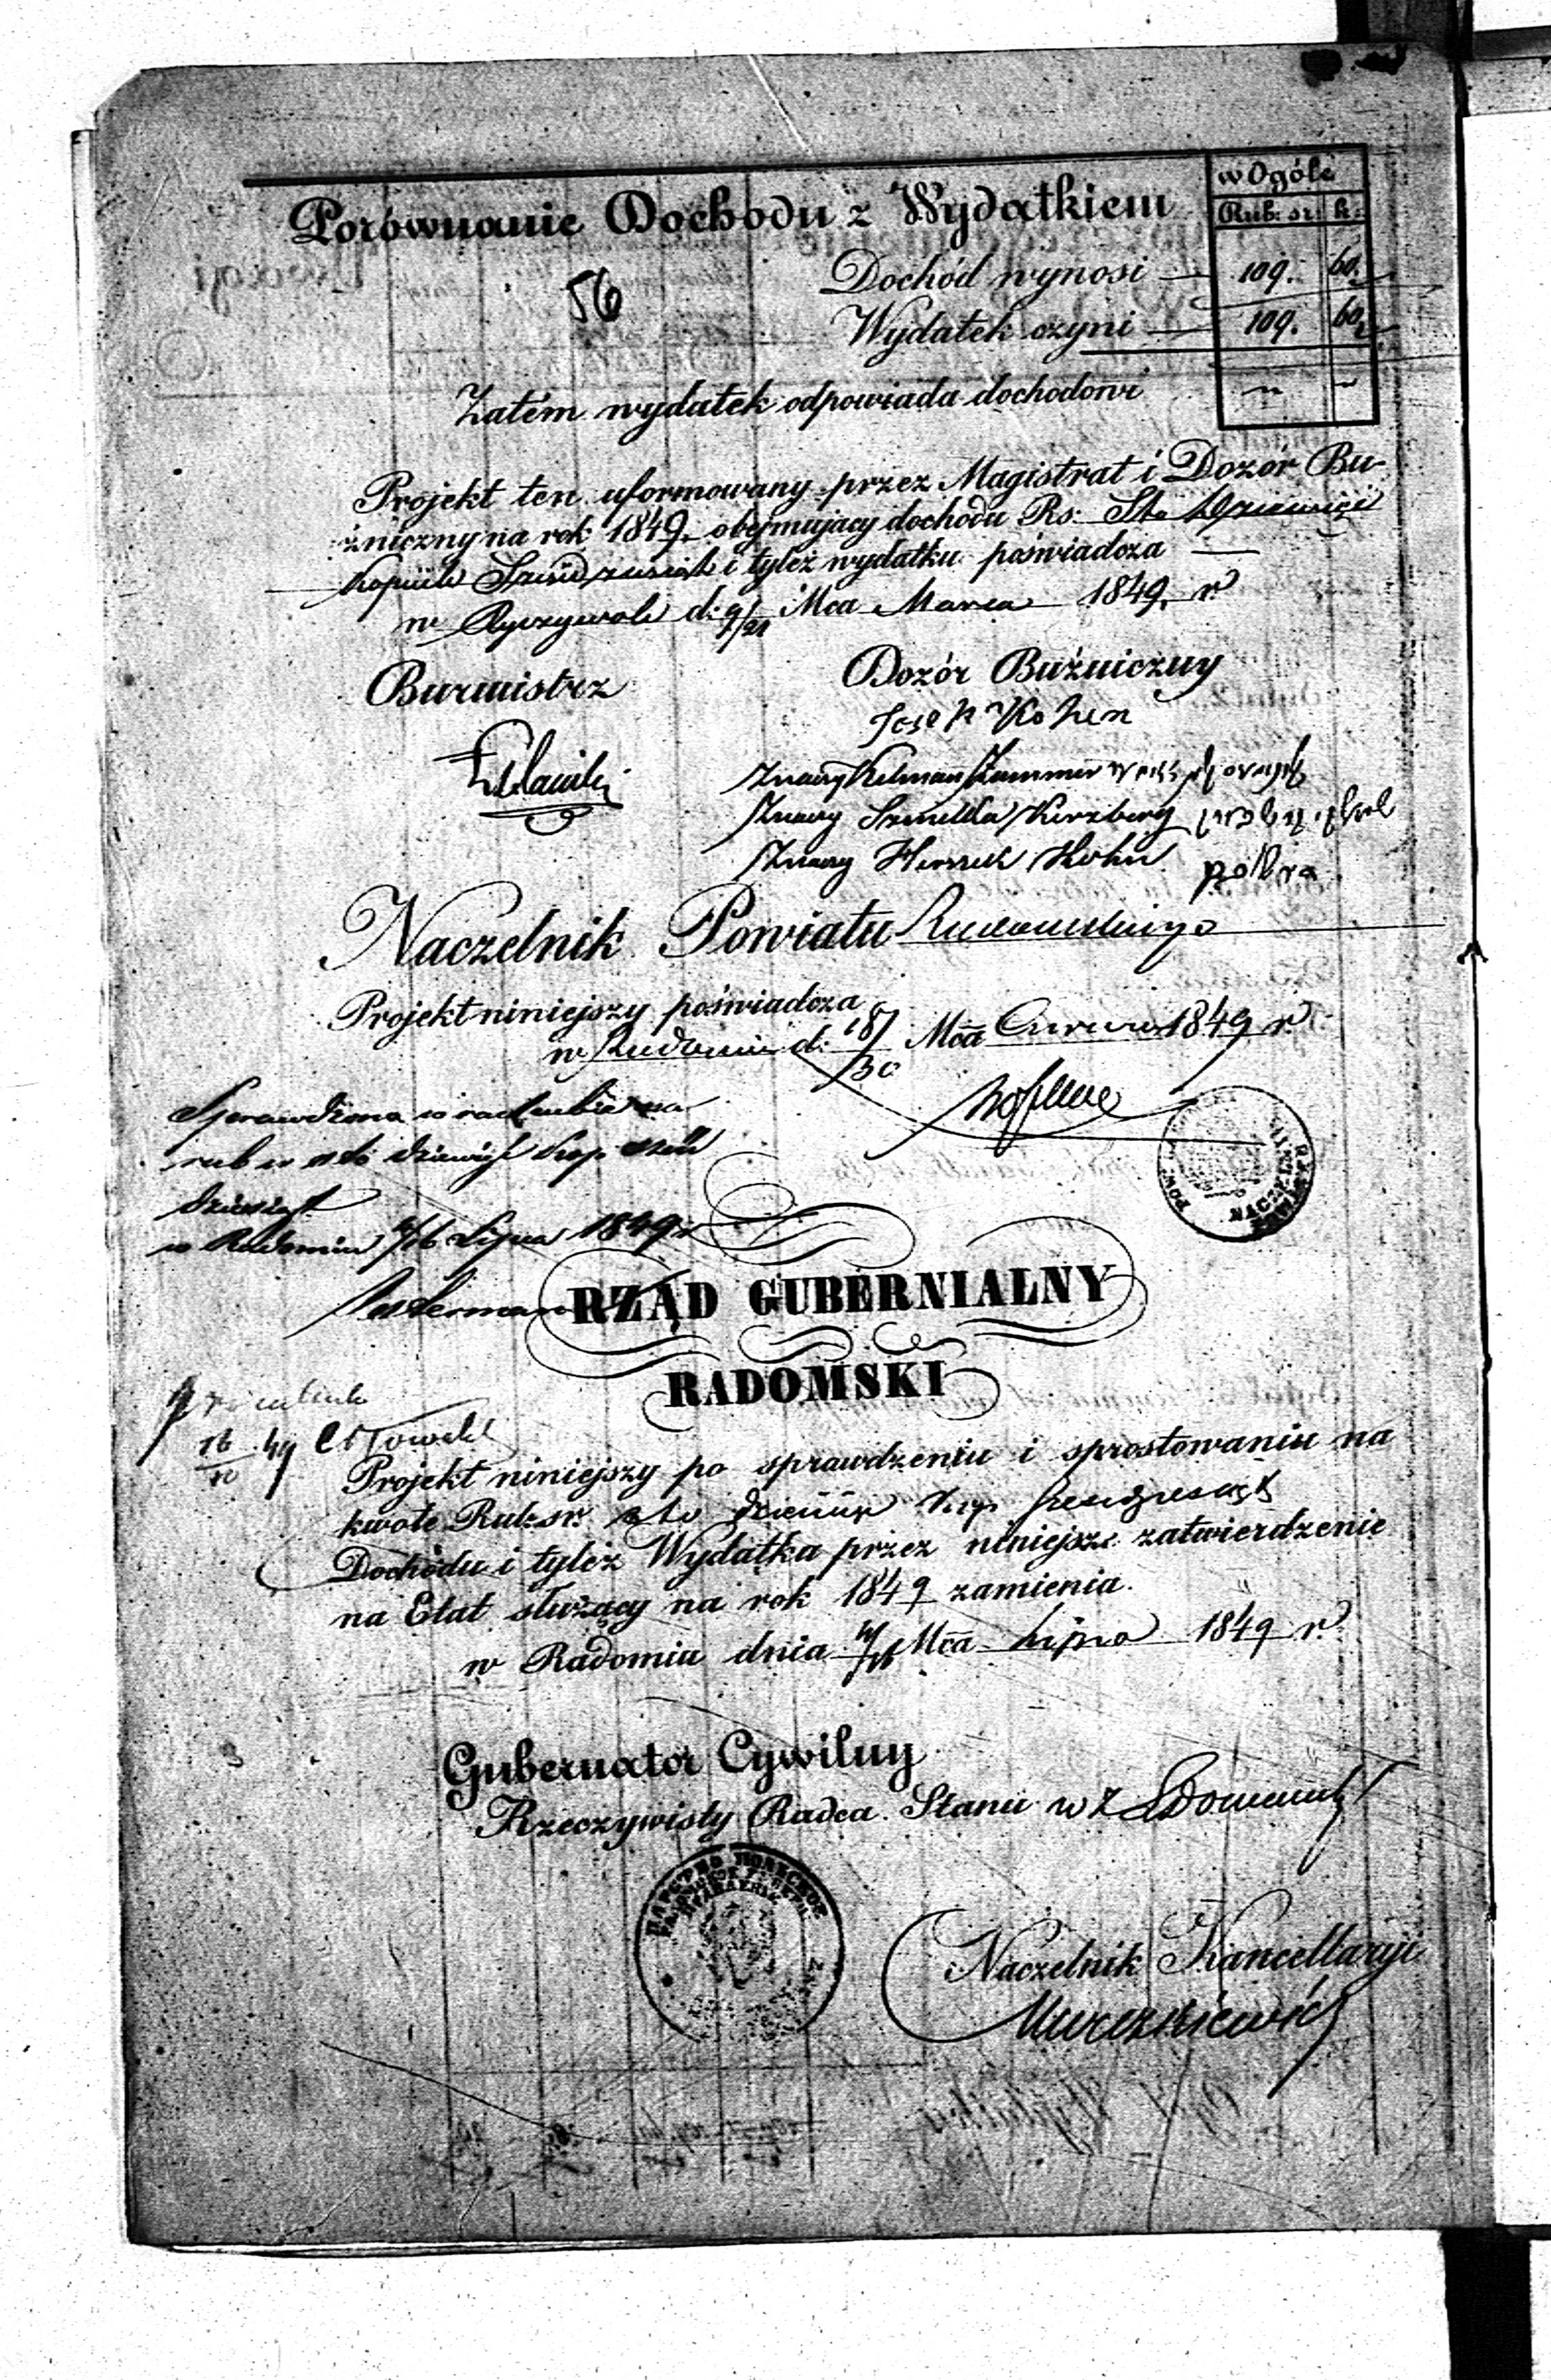 w Ogóle
Porównanie Dochodu z Wydatkiem Rub: sr: k:
Dochód wynosi — 109. 60.
56
Wydatek czyni — 109. 60.
Zatem wydatek odpowiada dochodowi
Projekt ten uformowany przez Magistrat i Dozór Bu-
żniczny na rok 1849. obejmujący dochodu Rs: Sto Dziewięć
Kopiiek Sześćdziesiąt i tyleż wydatku poświadcza
w Ryczywole d: 9/21 Mca Marca 1849. r
Burmistrz
Dozór Bużniczny
Josek Kohen
Znaczy Kelman
Znaczy Szmelka Kerzberg
Znaczy Herszek Kohn
Naczelnik Powiatu Radomskiego
Projekt niniejszy poświadcza
w Radomiu d: 18/30 Mca Czerwca 1849 r.
Sprawdzona w rachubie na
rub sr sto dziewięć kop sześć
dziesiąt
w Radomiu 4/16 Lipca 1849 r
RZĄD GUBERNIALNY
RADOMSKI
Projekt niniejszy po sprawdzeniu i sprostowaniu na
kwotę Rub: sr. sto dziewięć kop sześćdziesiąt
Dochodu i tyleż Wydatku przez niniejsze zatwierdzenie
na Etat służący na rok 1849 zamienia.
w Radomiu dnia 4/16 Mca Lipca 1849 r.
Gubernator Cywilny
Rzeczywisty Radca Stanu w z
Naczelnik Kancellaryi